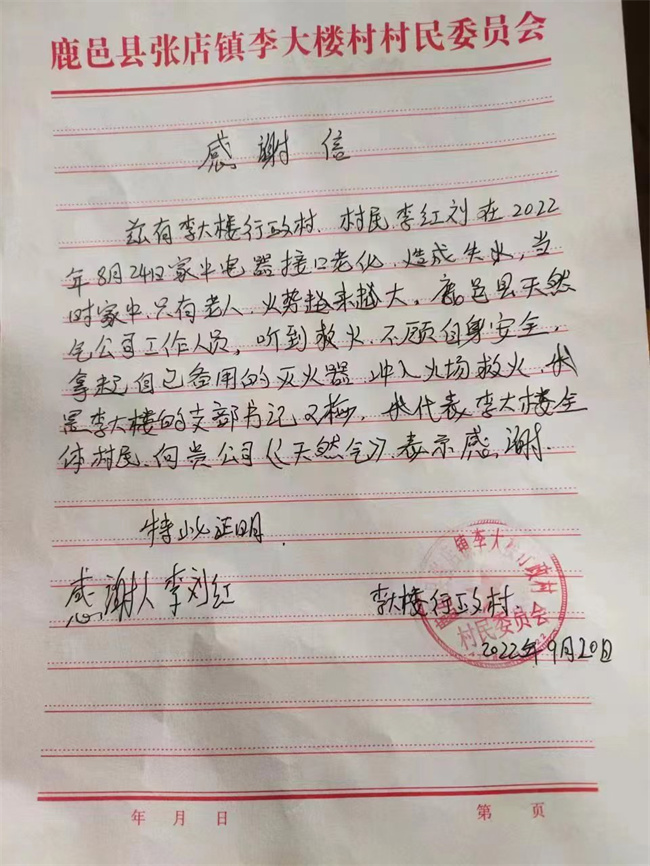 鹿邑县张店镇李大楼村村民委员会
感谢信
兹有李大楼行政村、村民李红刘在2022
年8月24日家中电器接口老化、造成失火,当
时家中只有老人、火势越来越大,鹿邑县天然
气公司工作人员,听到救火、不顾自身安全,
拿起自己备用的灭火器 冲入火场救火、我
是李大楼的支部书记 我代表李大楼全
体村民、向贵公司《天然气》表示感谢.
特此证明.
感谢人 李刘红
李大楼行政村
村民委员会
2022年9月20日
年 月 日
第 页